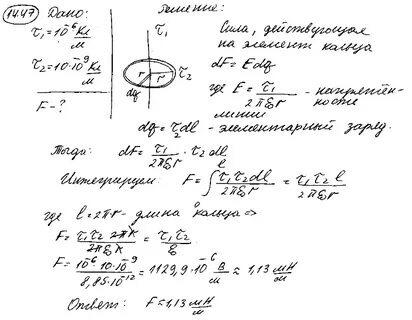 14.47 Дано: Решение:
τ₁=10⁻⁶ Кл/м
τ₂=10·10⁻⁹ Кл/м
F-?
τ₁
r r τ₂
dq
Сила, действующая
на элемент кольца
dF = Edq
где E = τ₁/2πε₀r - напряжён-
ность
нити
dq = τ₂dl - элементарный заряд.
Тогда: dF = τ₁/2πε₀r · τ₂ dl
Интегрируем: F = ∫₀ˡ τ₁τ₂dl/2πε₀r = τ₁τ₂l/2πε₀r
где l = 2πr - длина кольца =>
F = τ₁τ₂ 2πR/2πε₀R = τ₁τ₂/ε₀
F = 10⁻⁶·10·10⁻⁹/8,85·10⁻¹² = 1129,9·10⁻⁶ В/м ≈ 1,13 мН/м
Ответ: F = 1,13 мН/м